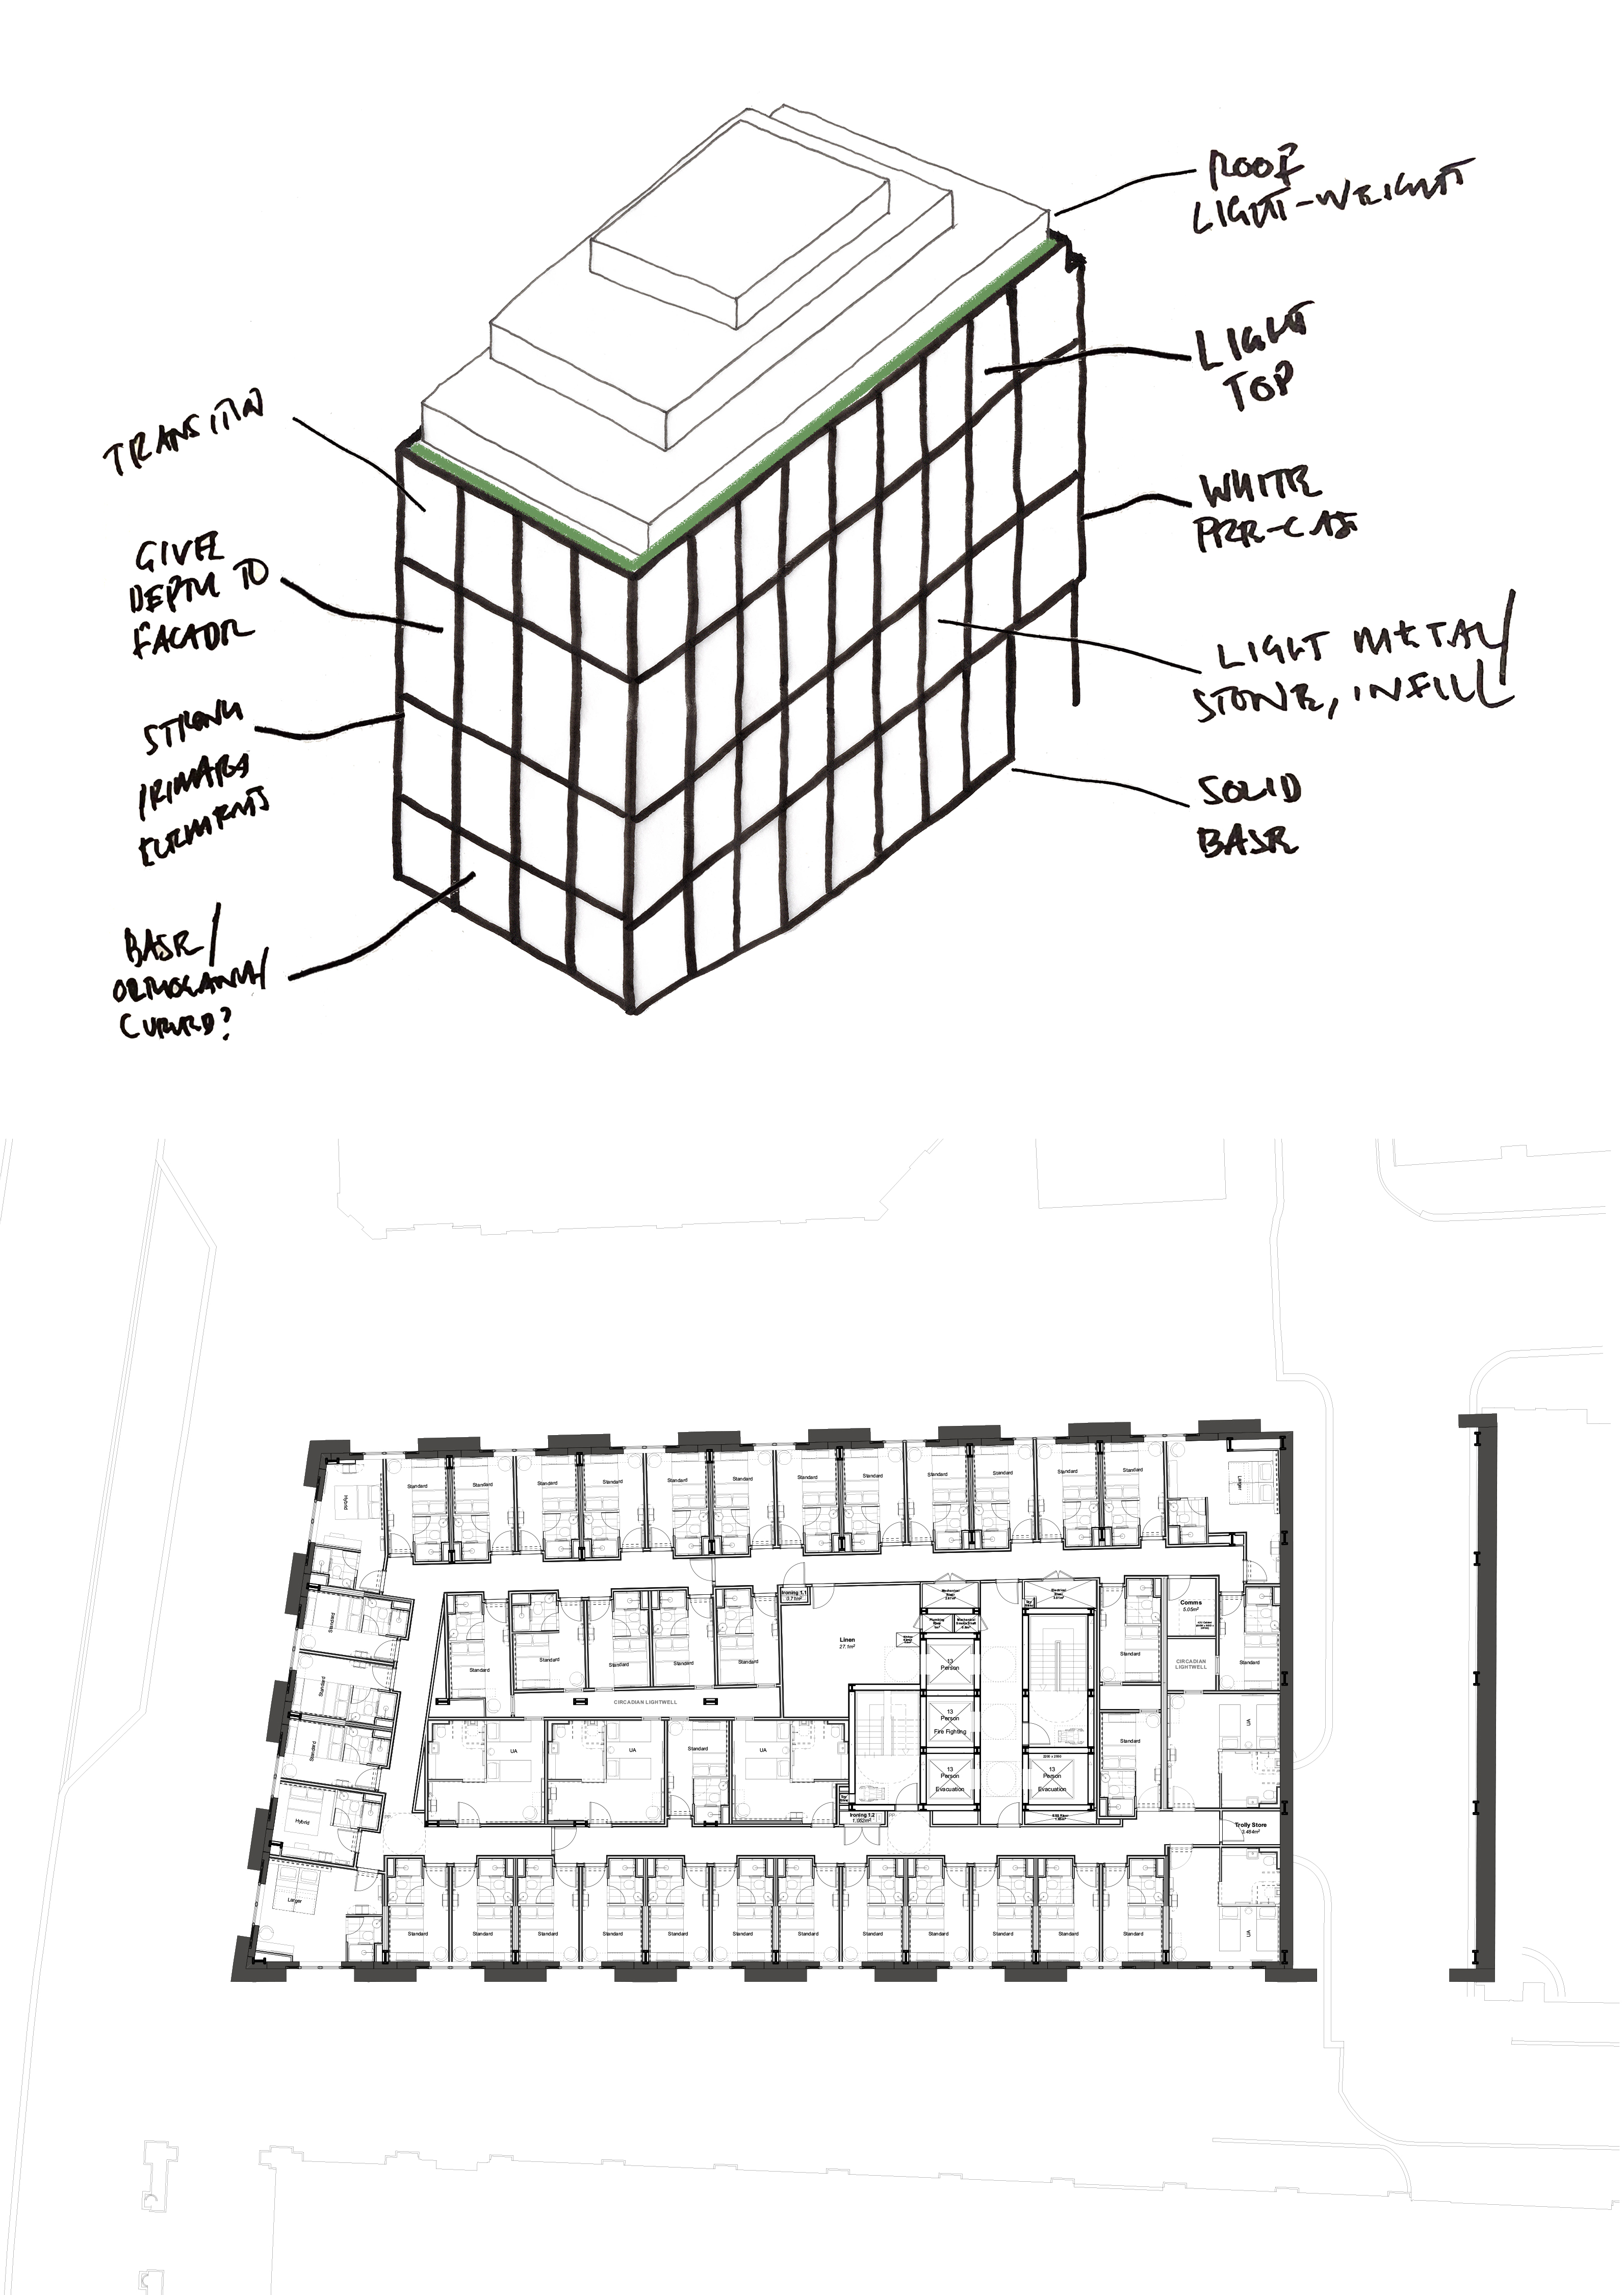 ROOF
LIGHT-WEIGHT
LIGHT
TOP
TRANSITION
WHITE
PRE-CAST
GIVE
DEPTH TO
FACADE
LIGHT METAL/
STONE, INFILL
STRONG
PRIMARY
ELEMENTS
SOLID
BASE
BASE/
ORTHOGANAL/
CURVED?
Hybrid
Standard
Standard
Standard
Standard
Standard
Standard
Standard
Standard
Standard
Standard
Standard
Standard
Larger
Ironing 1.1
0.71m²
Comms
5.05m²
Standard
Linen
27.1m²
Standard
Standard
Standard
Standard
Standard
Standard
Standard
CIRCADIAN
LIGHTWELL
13
Person
Standard
CIRCADIAN LIGHTWELL
13
Person
Fire Fighting
Standard
UA
UA
Standard
UA
Standard
UA
13
Person
Evacuation
13
Person
Evacuation
Hybrid
Ironing 1.2
1.082m²
Trolly Store
3.484m²
Larger
Standard
Standard
Standard
Standard
Standard
Standard
Standard
Standard
Standard
Standard
Standard
Standard
UA